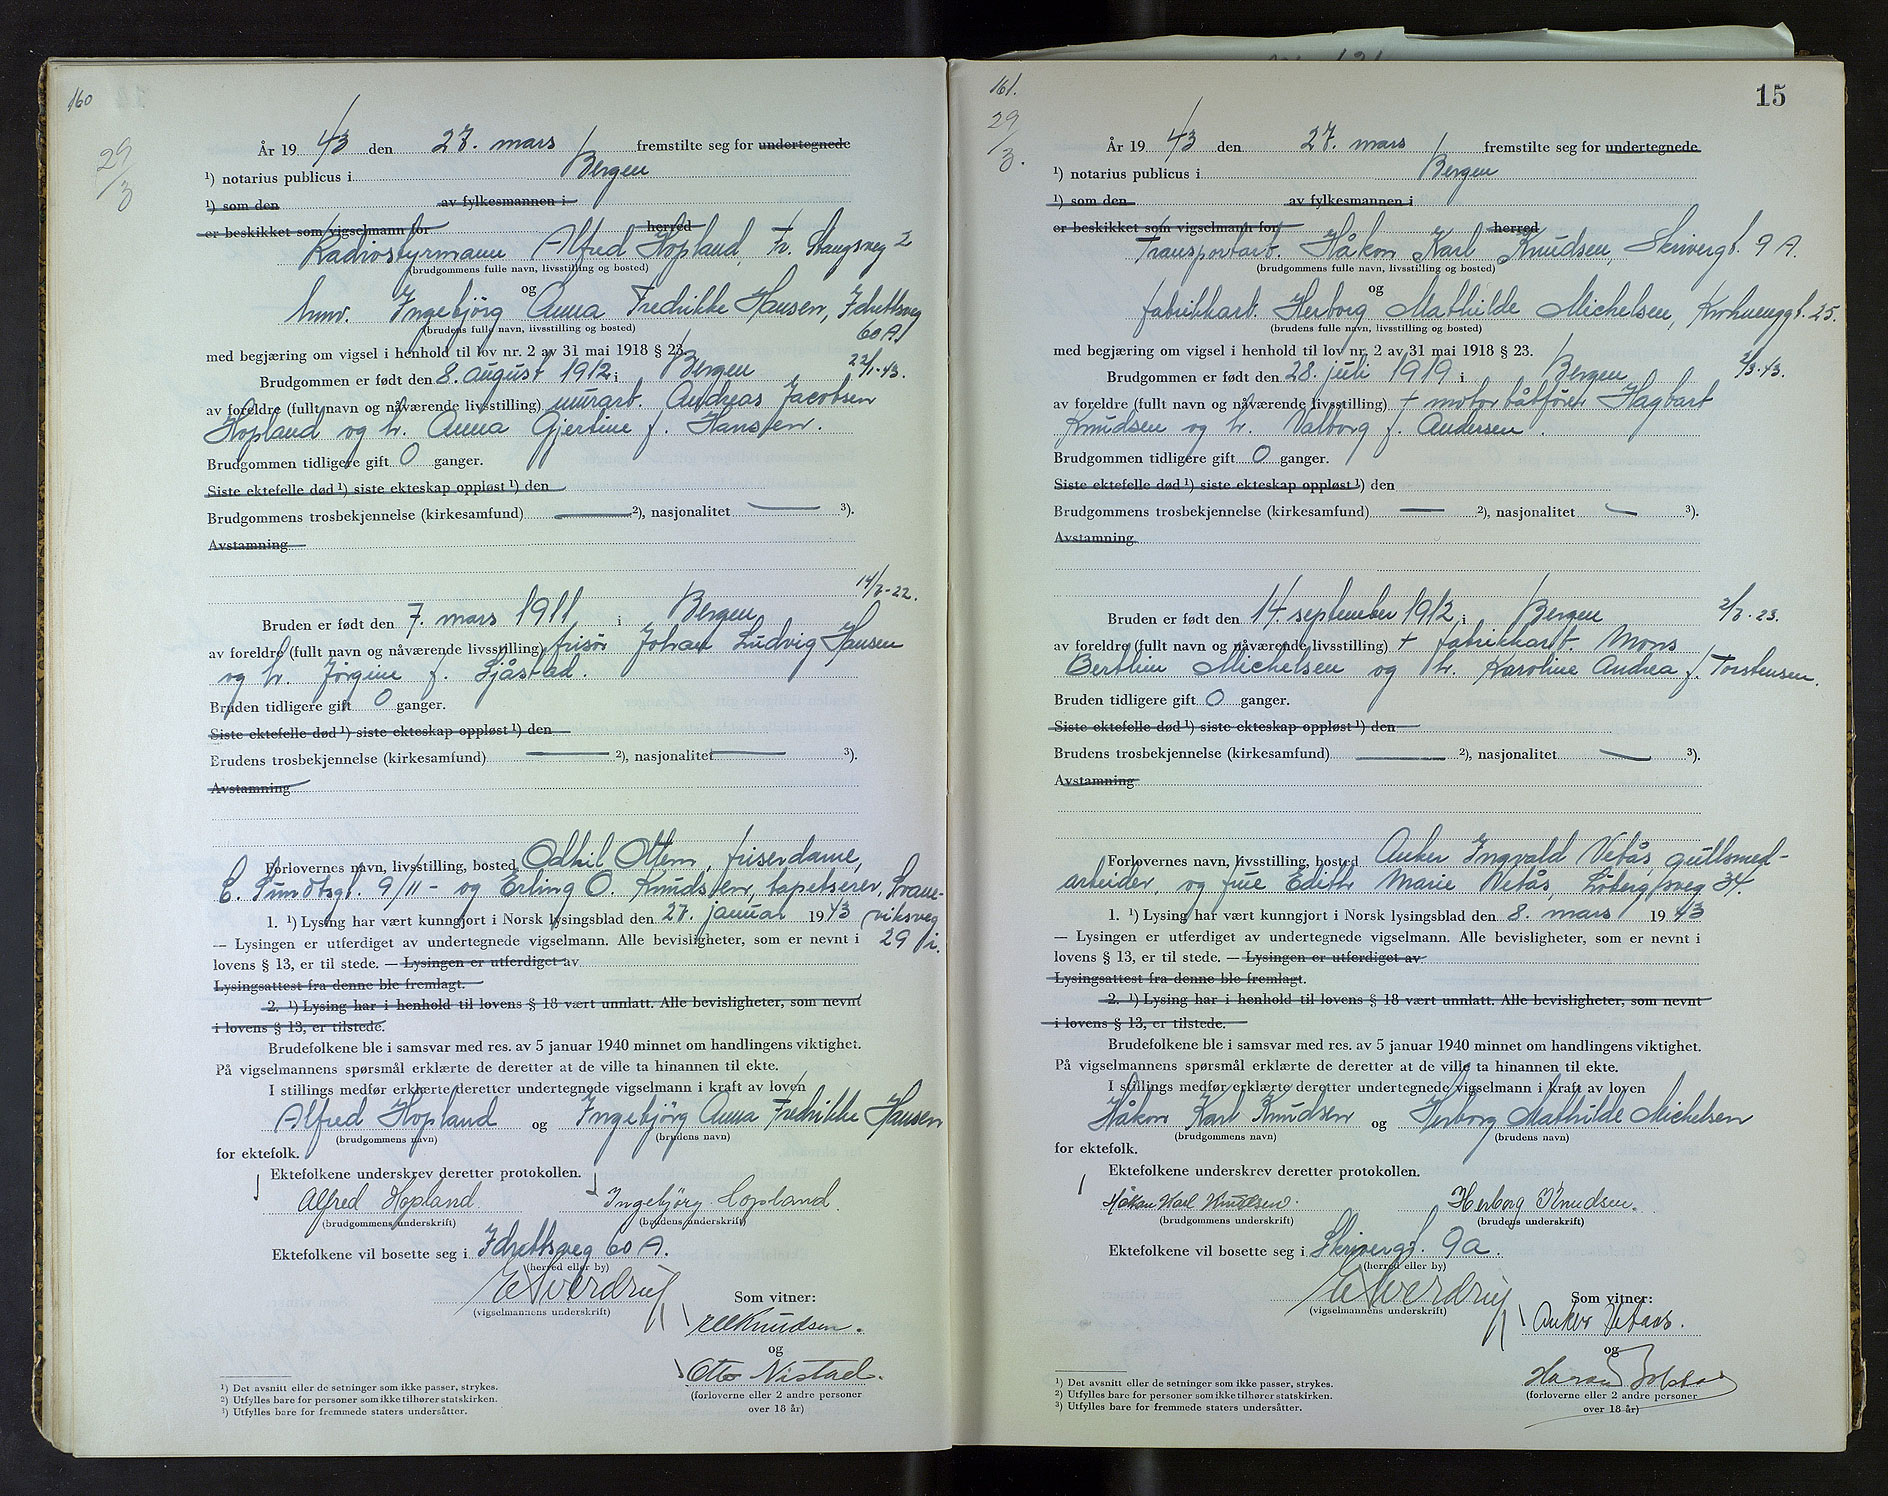 160
29/3
År 19 43 den 27. mars fremstilte seg for undertegnede
¹) notarius publicus i Bergen
¹) som den av fylkesmannen i
er beskikket som vigselmann for herred
Radiostyrmann Alfred Hopland, Fr. Stangsveg 2
(brudgommens fulle navn, livsstilling og bosted)
og
hmv. Ingebjörg Anna Fredrikke Hansen, Idrettsveg
(brudens fulle navn, livsstilling og bosted)
60 A.
med begjæring om vigsel i henhold til lov nr. 2 av 31 mai 1918 § 23.
Brudgommen er født den 8. august 1912 i Bergen 22/1-43.
av foreldre (fullt navn og nåværende livsstilling) murarb. Andreas Jacobsen
Hopland og h. Anna Gjertine f. Hansen.
Brudgommen tidligere gift 0 ganger.
Siste ektefelle død ¹) siste ekteskap oppløst ¹) den
Brudgommens trosbekjennelse (kirkesamfund) — ²), nasjonalitet — ³).
Avstamning
14/3-22.
Bruden er født den 7. mars 1911 i Bergen
av foreldre (fullt navn og nåværende livsstilling) frisør Johan Ludvig Hansen
og h. Jørgine f. Sjåstad.
Bruden tidligere gift 0 ganger.
Siste ektefelle død ¹) siste ekteskap oppløst ¹) den
Brudens trosbekjennelse (kirkesamfund) — ²), nasjonalitet — ³).
Avstamning
Forlovernes navn, livsstilling, bosted Odhil Ottem, friserdame,
C. Sundtsgt. 9/11 - og Erling O. Knudsen, tapetserer, Svane-
viksveg
29 i.
1. ¹) Lysing har vært kunngjort i Norsk lysingsblad den 27. januar 19 43
— Lysingen er utferdiget av undertegnede vigselmann. Alle bevisligheter, som er nevnt i
lovens § 13, er til stede. — Lysingen er utferdiget av
Lysingsattest fra denne ble fremlagt.
2. ¹) Lysing har i henhold til lovens § 18 vært unnlatt. Alle bevisligheter, som nevnt
i lovens § 13, er tilstede.
Brudefolkene ble i samsvar med res. av 5 januar 1940 minnet om handlingens viktighet.
På vigselmannens spørsmål erklærte de deretter at de ville ta hinannen til ekte.
I stillings medfør erklærte deretter undertegnede vigselmann i kraft av loven
Alfred Hopland og Ingebjörg Anna Fredrikke Hansen
(brudgommens navn) (brudens navn)
for ektefolk.
Ektefolkene underskrev deretter protokollen.
Alfred Hopland. Ingebjörg Hopland.
(brudgommens underskrift) (brudens underskrift)
Ektefolkene vil bosette seg i Idrettsveg 60 A.
(herred eller by)
(vigselmannens underskrift)
Som vitner:
Knudsen.
og
Otto Nistad.
(forloverne eller 2 andre personer
over 18 år)
¹) Det avsnitt eller de setninger som ikke passer, strykes.
²) Utfylles bare for personer som ikke tilhører statskirken.
³) Utfylles bare for fremmede staters undersåtter.
161.
15
29/3.
År 19 43 den 27. mars fremstilte seg for undertegnede
¹) notarius publicus i Bergen
¹) som den av fylkesmannen i
er beskikket som vigselmann for herred
Transportarb. Håkon Karl Knudsen, Skrivergt. 9 A.
(brudgommens fulle navn, livsstilling og bosted)
og
fabrikkarb. Herborg Mathilde Michelsen, Krohnenggt. 25.
(brudens fulle navn, livsstilling og bosted)
med begjæring om vigsel i henhold til lov nr. 2 av 31 mai 1918 § 23.
Brudgommen er født den 28. juli 1919 i Bergen 2/3-43.
av foreldre (fullt navn og nåværende livsstilling) + motorbåtfører Hagbart
Knudsen og h. Valborg f. Andersen.
Brudgommen tidligere gift 0 ganger.
Siste ektefelle død ¹) siste ekteskap oppløst ¹) den
Brudgommens trosbekjennelse (kirkesamfund) — ²), nasjonalitet — ³).
Avstamning
Bruden er født den 14. september 1912 i Bergen 2/3-23.
av foreldre (fullt navn og nåværende livsstilling) + fabrikkarb. Mons
Berthin Michelsen og h. Karoline Andrea f. Torstensen.
Bruden tidligere gift 0 ganger.
Siste ektefelle død ¹) siste ekteskap oppløst ¹) den
Brudens trosbekjennelse (kirkesamfund) — ²), nasjonalitet — ³).
Avstamning
Forlovernes navn, livsstilling, bosted Anker Ingvald Vetås, gullsmed-
arbeider, og frue Edith Marie Vetås, Löbergsveg 34.
1. ¹) Lysing har vært kunngjort i Norsk lysingsblad den 8. mars 19 43
— Lysingen er utferdiget av undertegnede vigselmann. Alle bevisligheter, som er nevnt i
lovens § 13, er til stede. — Lysingen er utferdiget av
Lysingsattest fra denne ble fremlagt.
2. ¹) Lysing har i henhold til lovens § 18 vært unnlatt. Alle bevisligheter, som nevnt
i lovens § 13, er tilstede.
Brudefolkene ble i samsvar med res. av 5 januar 1940 minnet om handlingens viktighet.
På vigselmannens spørsmål erklærte de deretter at de ville ta hinannen til ekte.
I stillings medfør erklærte deretter undertegnede vigselmann i kraft av loven
Håkon Karl Knudsen og Herborg Mathilde Michelsen
(brudgommens navn) (brudens navn)
for ektefolk.
Ektefolkene underskrev deretter protokollen.
Håkon Karl Knudsen. Herborg Knudsen.
(brudgommens underskrift) (brudens underskrift)
Ektefolkene vil bosette seg i Skrivergt. 9a.
(herred eller by)
(vigselmannens underskrift)
Som vitner:
Anker Vetaas.
og
(forloverne eller 2 andre personer
over 18 år)
¹) Det avsnitt eller de setninger som ikke passer, strykes.
²) Utfylles bare for personer som ikke tilhører statskirken.
³) Utfylles bare for fremmede staters undersåtter.